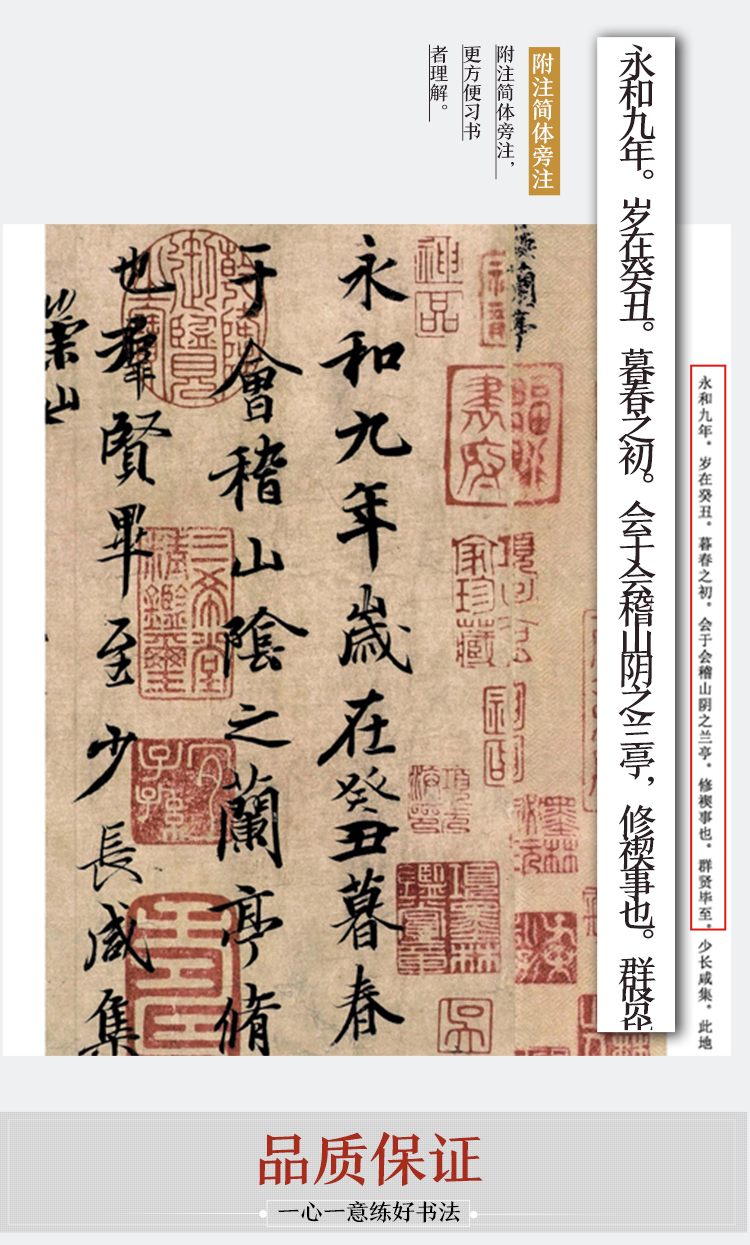 附注简体旁注
附注简体旁注，
更方便习书
者理解。
永和九年。岁在癸丑。暮春之初。会于会稽山阴之兰亭，修禊事也。群贤毕
永和九年。岁在癸丑。暮春之初。会于会稽山阴之兰亭。修禊事也。群贤毕至。少长咸集。此地
神品
書府
家珍藏
永和九年歲在癸丑暮春
于會稽山陰之蘭亭脩
也羣賢畢至少長咸集
崇山
御覽
三希堂
精鑑璽
宜
子孫
品质保证
一心一意练好书法